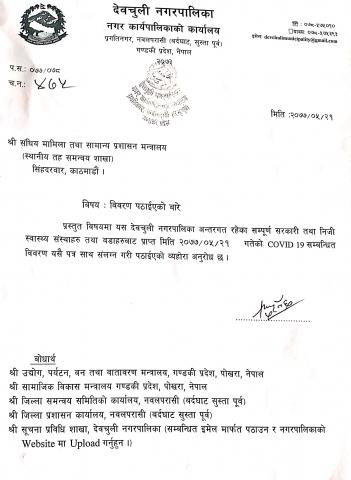 देवचुली नगरपालिका
नगर कार्यपालिकाको कार्यालय
प्रगतिनगर, नवलपरासी (बर्दघाट, सुस्ता पूर्व)
गण्डकी प्रदेश, नेपाल
२०७३
फोन : ०७८-५७५०९०
०७८-५७५२९२
इमेल: devchulimunicipality@gmail.com
प.स.: ०७७/०७८
च.न.: ४६५
मिति :२०७७/०५/२१
श्री संघिय मामिला तथा सामान्य प्रशासन मन्त्रालय
(स्थानीय तह समन्वय शाखा)
सिंहदरवार, काठमाडौं ।
विषय : विवरण पठाईएको बारे
प्रस्तुत विषयमा यस देवचुली नगरपालिका अन्तरगत रहेका सम्पूर्ण सरकारी तथा निजी
स्वास्थ्य संस्थाहरु तथा वडाहरुबाट प्राप्त मिति २०७७/०५/२१ गतेको COVID 19 सम्बन्धित
विवरण यसै पत्र साथ संलग्न गरी पठाईएको व्यहोरा अनुरोध छ ।
बोधार्थ
श्री उद्योग, पर्यटन, वन तथा वातावरण मन्त्रालय, गण्डकी प्रदेश, पोखरा, नेपाल
श्री सामाजिक विकास मन्त्रालय गण्डकी प्रदेश, पोखरा, नेपाल
श्री जिल्ला समन्वय समितिको कार्यालय, नवलपरासी (बर्दघाट सुस्ता पूर्व)
श्री जिल्ला प्रशासन कार्यालय, नवलपरासी (बर्दघाट सुस्ता पूर्व)
श्री सूचना प्रविधि शाखा, देवचुली नगरपालिका (सम्बन्धित इमेल मार्फत पठाउन र नगरपालिकाको
Website मा Upload गर्नुहुन ।)